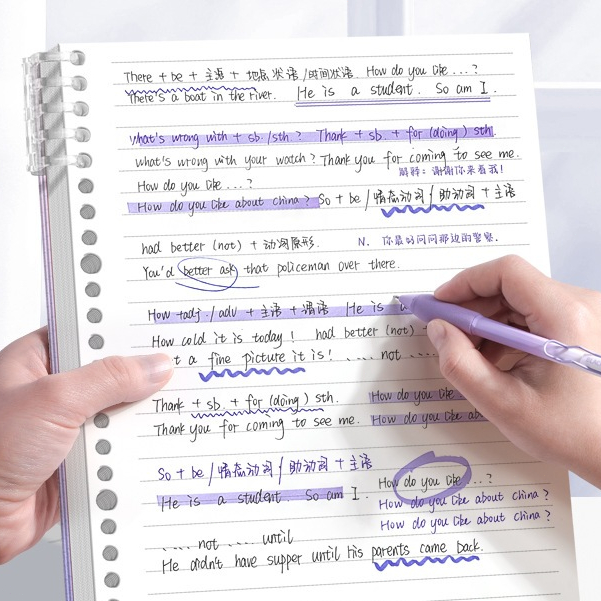 There + be + 主语 + 地点状语/时间状语. How do you like ...?
There's a boat in the river. He is a student. So am I.
what's wrong with + sb./sth? Thank + sb. + for (doing) sth.
what's wrong with your watch? Thank you for coming to see me.
解释:谢谢你来看我!
How do you like ...?
How do you like about china? So + be/情态动词/助动词 + 主语
had better (not) + 动词原形. N. 你最好问问那边的警察.
You'd better ask that policeman over there.
How + adj./adv + 主语 + 谓语 He is a
How cold it is today! had better (not) +
t a fine picture it is! .... not ....
Thank + sb. + for (doing) sth. How do you like
Thank you for coming to see me. How do you like ab
So + be/情态动词/助动词 + 主语
How do you like ...?
He is a student. So am I. How do you like about china?
How do you like about china?
.... not .... until
He didn't have supper until his parents came back.